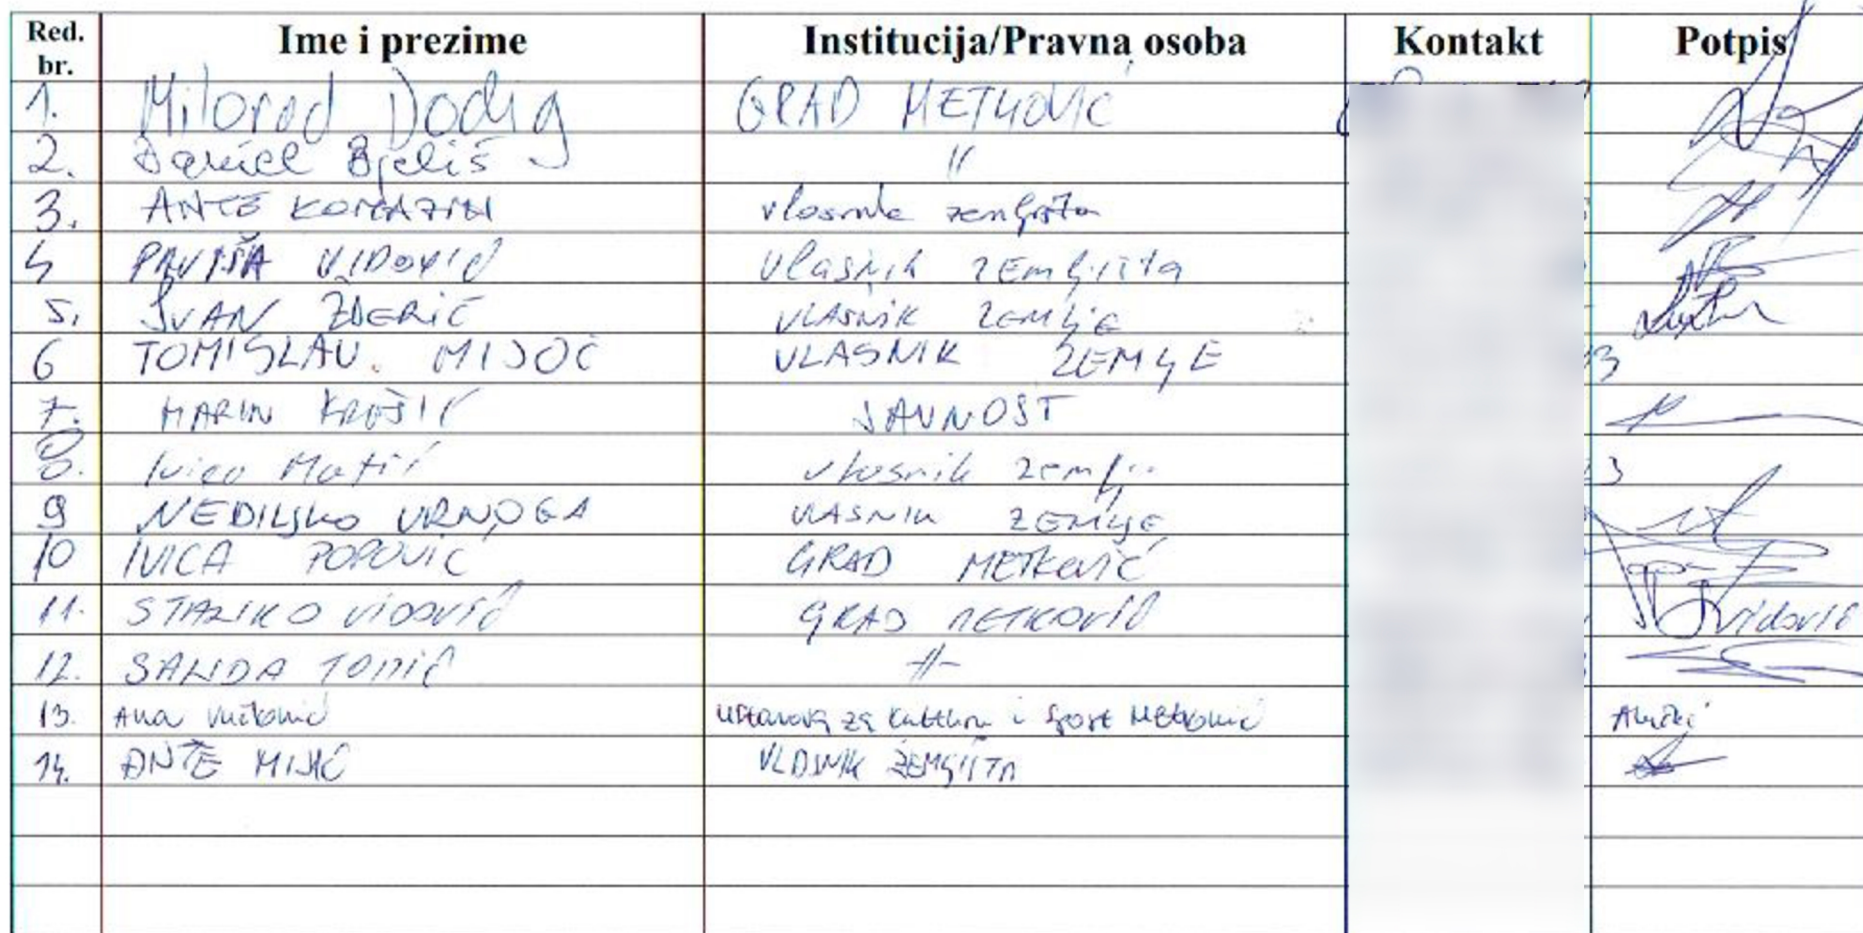 Red. br. Ime i prezime Institucija/Pravna osoba Kontakt Potpis
1. Milorad Dodig GRAD METKOVIĆ
2. Daniel Bjeliš "
3. ANTE vlasnik zemljišta
4 PAVIŠA VIDOVIĆ vlasnik zemljišta
5. IVAN ŽDERIĆ VLASNIK ZEMLJE
6 TOMISLAV MIJOČ VLASNIK ZEMLJE
7. MARIN KREŠIĆ JAVNOST
8. Ivica Matić vlasnik
9 NEDILJKO VRNOGA VLASNIK ZEMLJE
10 IVICA POPOVIĆ GRAD METKOVIĆ
11. STANKO VIDOVIĆ GRAD METKOVIĆ Vidović
12. SANDA TOMIĆ -//-
13. Ana Vučković Ustanova za kulturu i sport Metković
14. ANTE MIJIĆ VLASNIK ZEMLJIŠTA